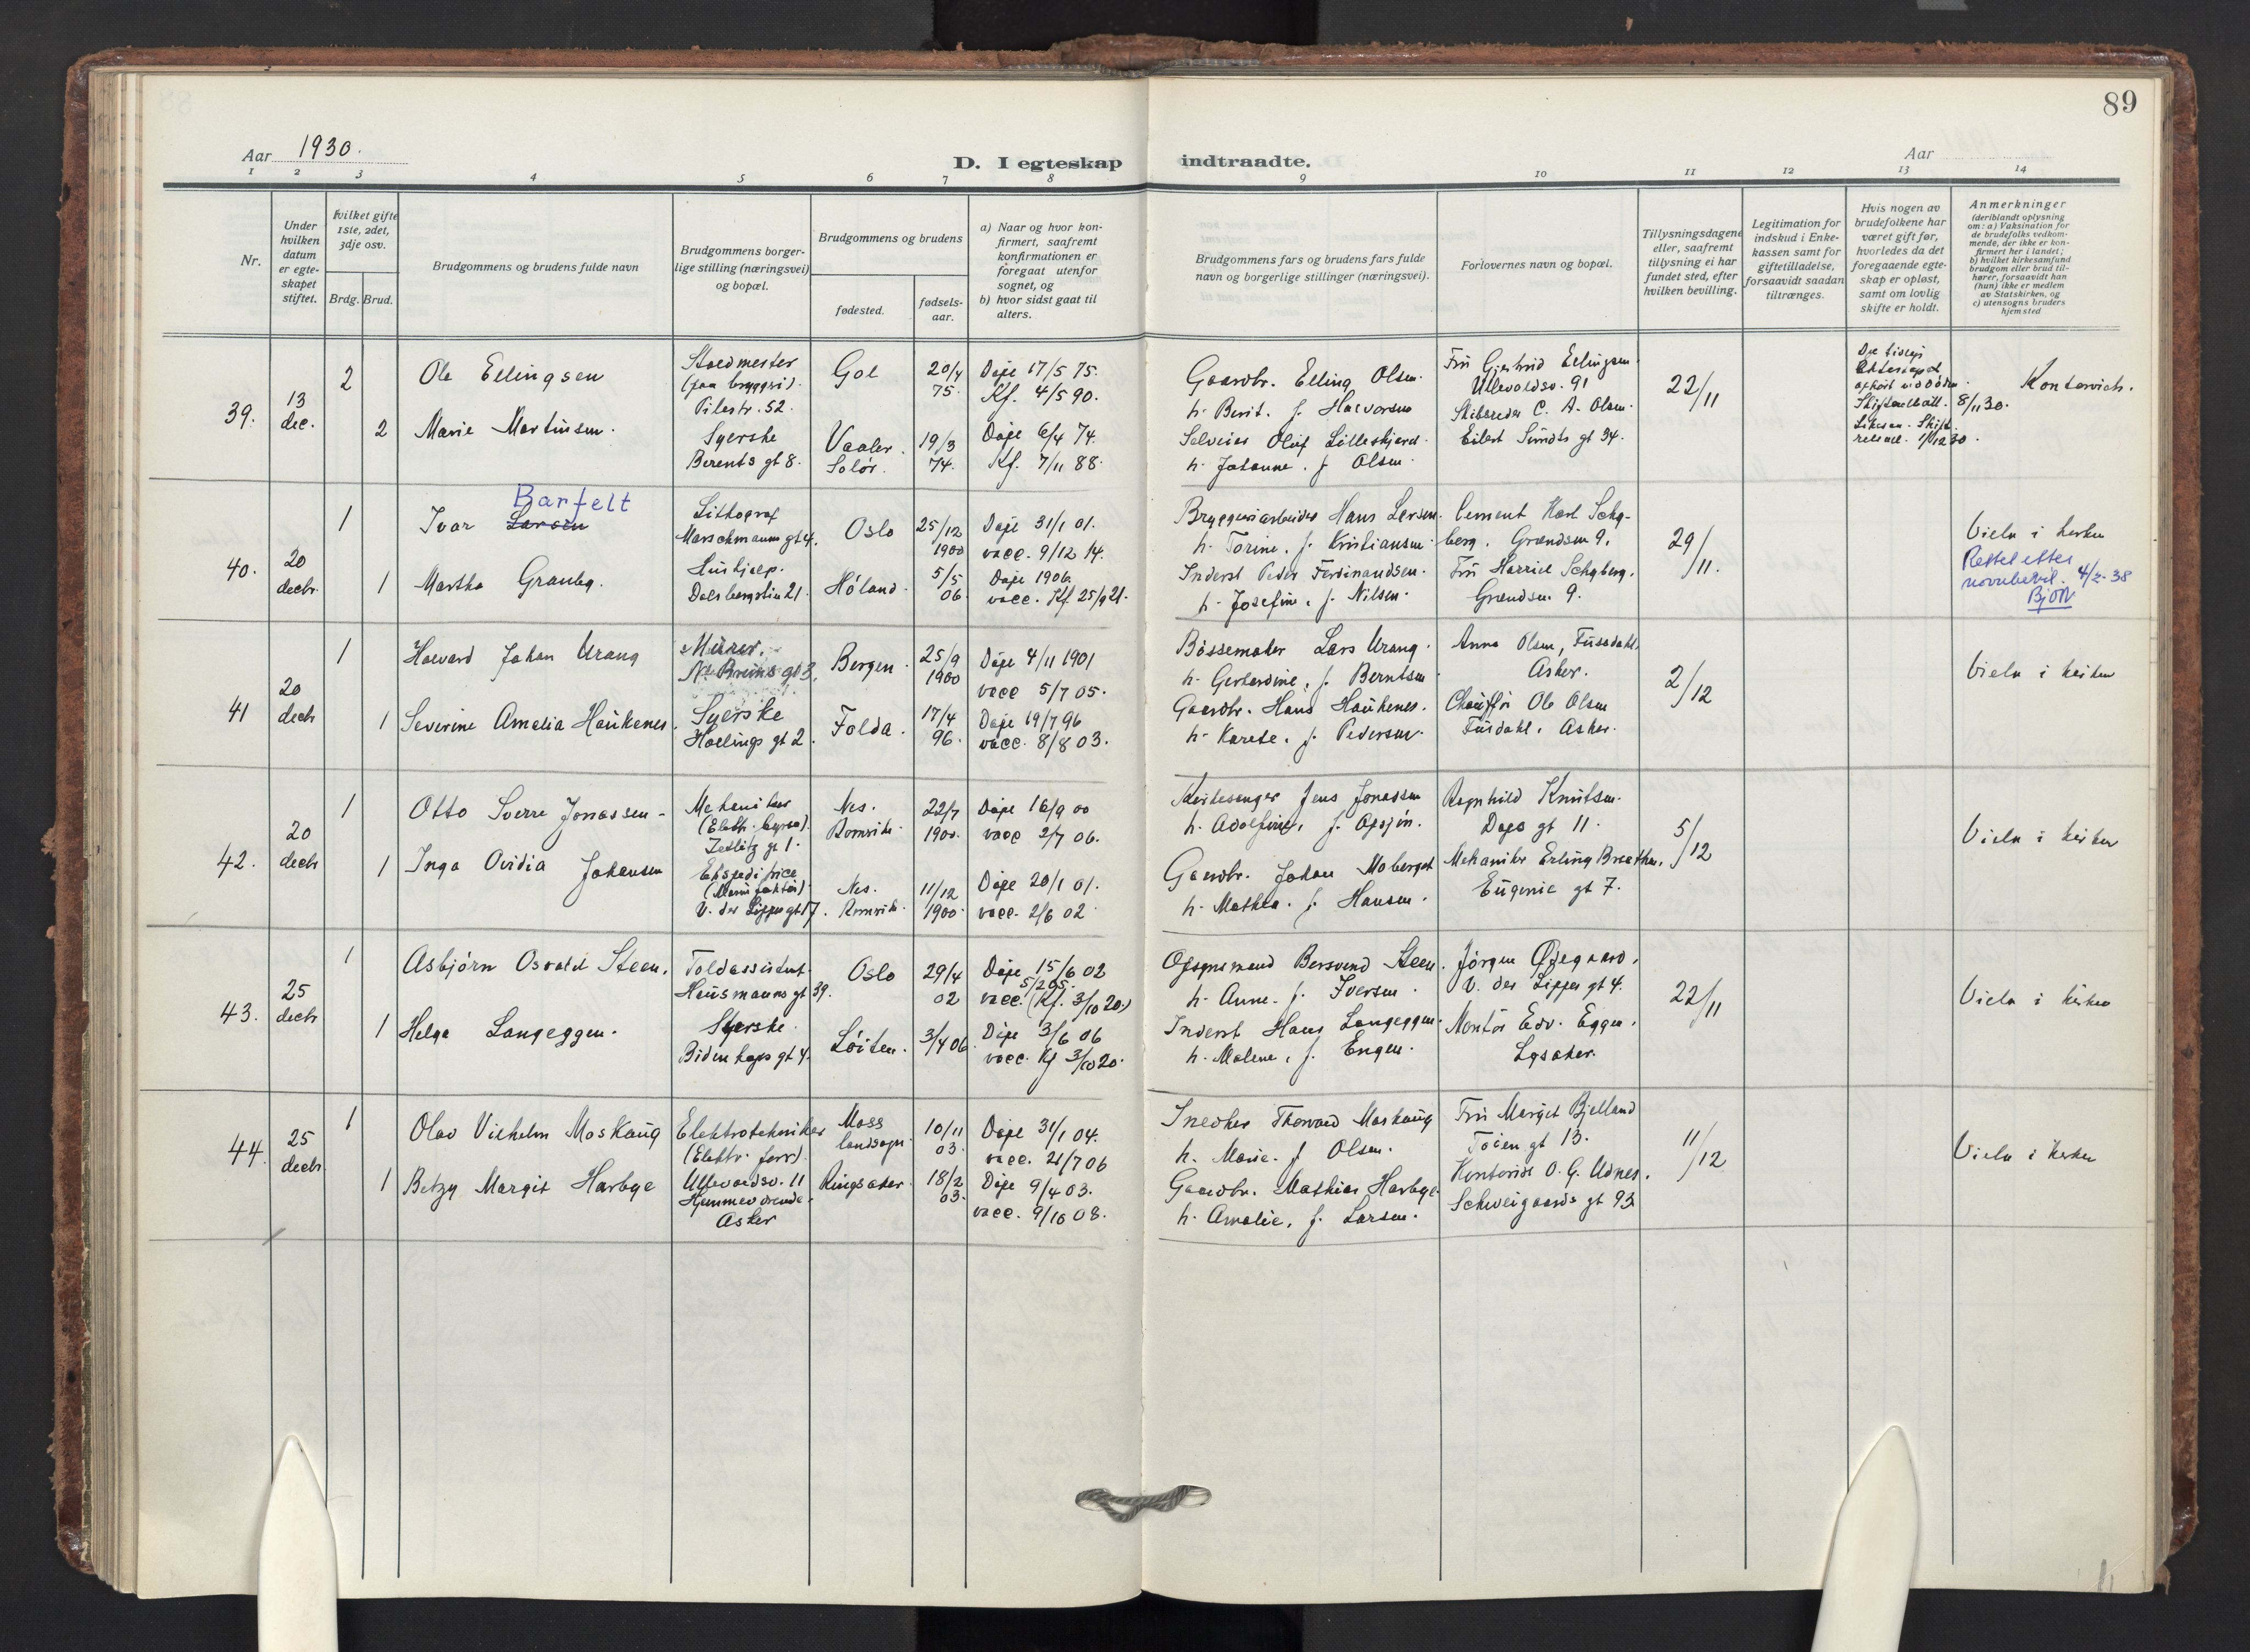 89
Aar 1930.
D. I egteskap indtraadte.
Aar
1 2 3 4 5 6 7 8 9 10 11 12 13 14
Nr.
Under
hvilken
datum
er egte-
skapet
stiftet.
hvilket gifte
1ste, 2det,
3dje osv.
Brdg. Brud.
Brudgommens og brudens fulde navn
Brudgommens borger-
lige stilling (næringsvei)
og bopæl.
Brudgommens og brudens
fødested.
fødsels-
aar.
a) Naar og hvor kon-
firmert, saafremt
konfirmationen er
foregaat utenfor
sognet, og
b) hvor sidst gaat til
alters.
Brudgommens fars og brudens fars fulde
navn og borgerlige stillinger (næringsvei).
Forlovernes navn og bopæl.
Tillysningsdagene
eller, saafremt
tillysning ei har
fundet sted, efter
hvilken bevilling.
Legitimation for
indskud i Enke-
kassen samt for
giftetilladelse,
forsaavidt saadan
tiltrænges.
Hvis nogen av
brudefolkene har
været gift før,
hvorledes da det
foregaaende egte-
skap er opløst,
samt om lovlig
skifte er holdt.
Anmerkninger
(deriblandt oplysning
om: a) Vaksination for
de brudefolks vedkom-
mende, der ikke er kon-
firmert her i landet;
b) hvilket kirkesamfund
brudgom eller brud til-
hører, forsaavidt han
(hun) ikke er medlem
av Statskirken, og
c) utensogns bruders
hjemsted
39.
13
dec.
2
Ole Ellingsen
Stoldmester
(paa bryggri).
Pilestr. 52.
Gol
20/4
75.
Døpt 17/5 75.
Kf. 4/5 90.
Gaardbr. Elling Olsen.
h. Berit. f. Halvorsen
Fru Gjertrud Ellingsen.
Ullevoldsv. 91
22/11
8/11 30.
2
Marie Martinsen.
Syerske
Berents gt 8.
Vaaler.
Solør.
19/3
74.
Døpt 6/4 74.
Kf. 7/11 88.
Selveier Oluf Lilleskjæret.
h. Johanne. f. Olsen.
Skibsreder C. A. Olsen.
Eilert Sundts gt 34.
40.
20
decbr.
1
Barfelt
Ivar Larsen
Lithograf
Oslo
25/12
1900
Døpt 31/1 01.
vacc. 9/12 14.
Bryggeriarbeider Hans Larsen.
h. Torine. f. Kristiansen.
Grændsen 9.
29/11.
Viela i kirken
4/2-38
1
Martha Granbg.
Hushjælp.
Dalsbergstien 21.
Høland.
5/5
06
Døpt 1906.
vacc. Kf. 25/9 21.
Inderst Peder Ferdinandsen.
h. Josefine. f. Nilsen.
Grændsen 9.
41
20
decb
1
Halvard Johan Urang
Murer.
Bergen.
25/9
1900
Døpt 4/11 1901
vacc 5/7 05.
Bøssemaker Lars Urang.
h. Gerhardine, f. Berntsen
Anna Olsen, Fussdahl,
Asker.
2/12
Viela i kirken
1
Severine Amalia Haukenes.
Syerske
Hallings gt 2.
Folda.
17/4
96.
Døpt 19/7 96
vacc. 8/8 03.
Gaardbr. Hans Haukenes.
h. Karete. f. Pedersen.
Chauffør Ole Olsen
Fusdahl. Asker.
42.
20
decb
1
Otto Sverre Jonassen
Mekaniker
Zetlitz gt 1.
Nes.
Romerike
22/7
1900.
Døpt 16/9 00
vacc 2/7 06.
Kirkesanger Jens Jonassen
Ragnhild Knutsen.
Dops gt 11.
5/12
Viela i kirken
1
Inga Ovidia Johansen
Ekspeditrice
V. der Lippes gt 17.
Nes.
Romerike
11/12
1900.
Døpt 20/1 01.
vacc. 2/6 02
Gaardbr. Johan Moberget
h. Mathea. f. Hansen.
Mekaniker Erling Braathen.
Eugenie gt 7.
43.
25
decb
1
Asbjørn Osvald Steen.
Toldassistent.
Hausmanns gt 39.
Oslo
29/4
02
Døpt 15/6 02
5/2 05.
vacc. (Kf. 3/10 20.)
Opsynsmand Bersvend Steen.
h. Anne. f. Iversen.
Jørgen Ødegaard.
V. der Lippes gt 4.
22/11
Viela i kirken
1
Helga Langeggen.
Syerske.
Bidenkaps gt 4.
Løiten.
3/4 06
Døpt 3/6 06
vacc. Kf 3/10 20.
Inderst Hans Langeggen.
h. Malene, f. Engen.
Montør Edv. Eggen.
Lysaker.
44.
25
decb
1
Olav Vilhelm Moskaug
Elektrotekniker
(Elektr. forr).
Ullevoldsv. 11
Moss
landsogn
10/11
03.
Døpt 31/1 04.
vacc. 21/7 06
Snedker Thorvald Moskaug
h. Marie. f. Olsen.
Fru Margit Bjelland
Tøien gt 13.
11/12
Viela i kirken
1
Betzy Margit Harbye
Hjemmeværende.
Asker
Ringsaker
18/2
03.
Døpt 9/4 03.
vacc. 9/10 08.
Gaardbr. Mathias Harbye.
h. Amalie, f. Larsen.
Kontorist O. G. Udnes.
Schweigaards gt 93